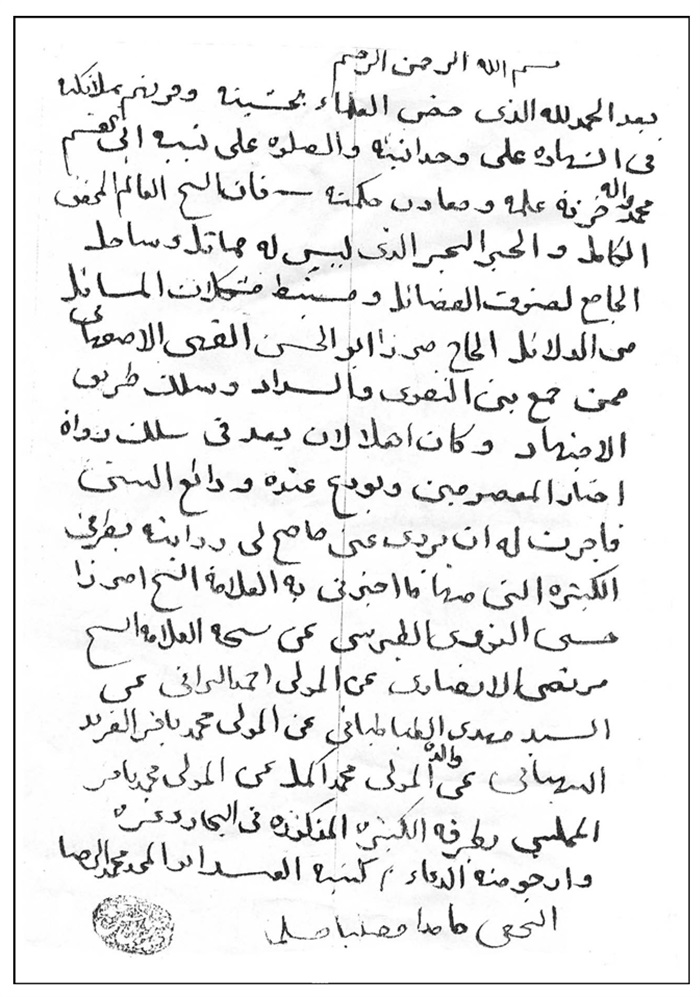 بسم الله الرحمن الرحيم
بعد الحمد لله الذى خص العلماء بخشيته وقرنهم بملائكته
فى الشهادة على وحدانيته والصلوة على نبيه ابى القسم
محمد واله خزنة علمه ومعادن حكمته فان الشيخ العالم المحقق
الكامل و الحبر البحر الذى ليس له مماثل وساحل
الجامع لصنوف الفضائل ومستنبط مشكلات المسائل
من الدلائل الحاج ميرزا ابو الحسن الفقيهى الاصفهانى
ممن جمع بين التقوى والسداد وسلك طريق
الاجتهاد وكان اهلا لان يعد فى سلك رواة
اخبار المعصومين وتودع عنده ودائع
فاجزت له ان يروى عنى ما صح لى روايته بطرقى
الكثيرة التى منها ما اخبرنى به العلامة الشيخ اميرزا
حسين النورى الطبرسى عن شيخه العلامة الشيخ
مرتضى الانصارى عن المولى احمد النراقى عن
السيد مهدى الطباطبائى عن المولى محمد باقر الفريد
البهبهانى عن والده المولى محمد اكمل عن المولى محمد باقر
المجلسى بطرقه الكثيرة المذكورة فى البحار وغيره
وارجو منه الدعاء كتبه العبد ابو المجد محمد الرضا
النجفى حامدا مصليا مسلما